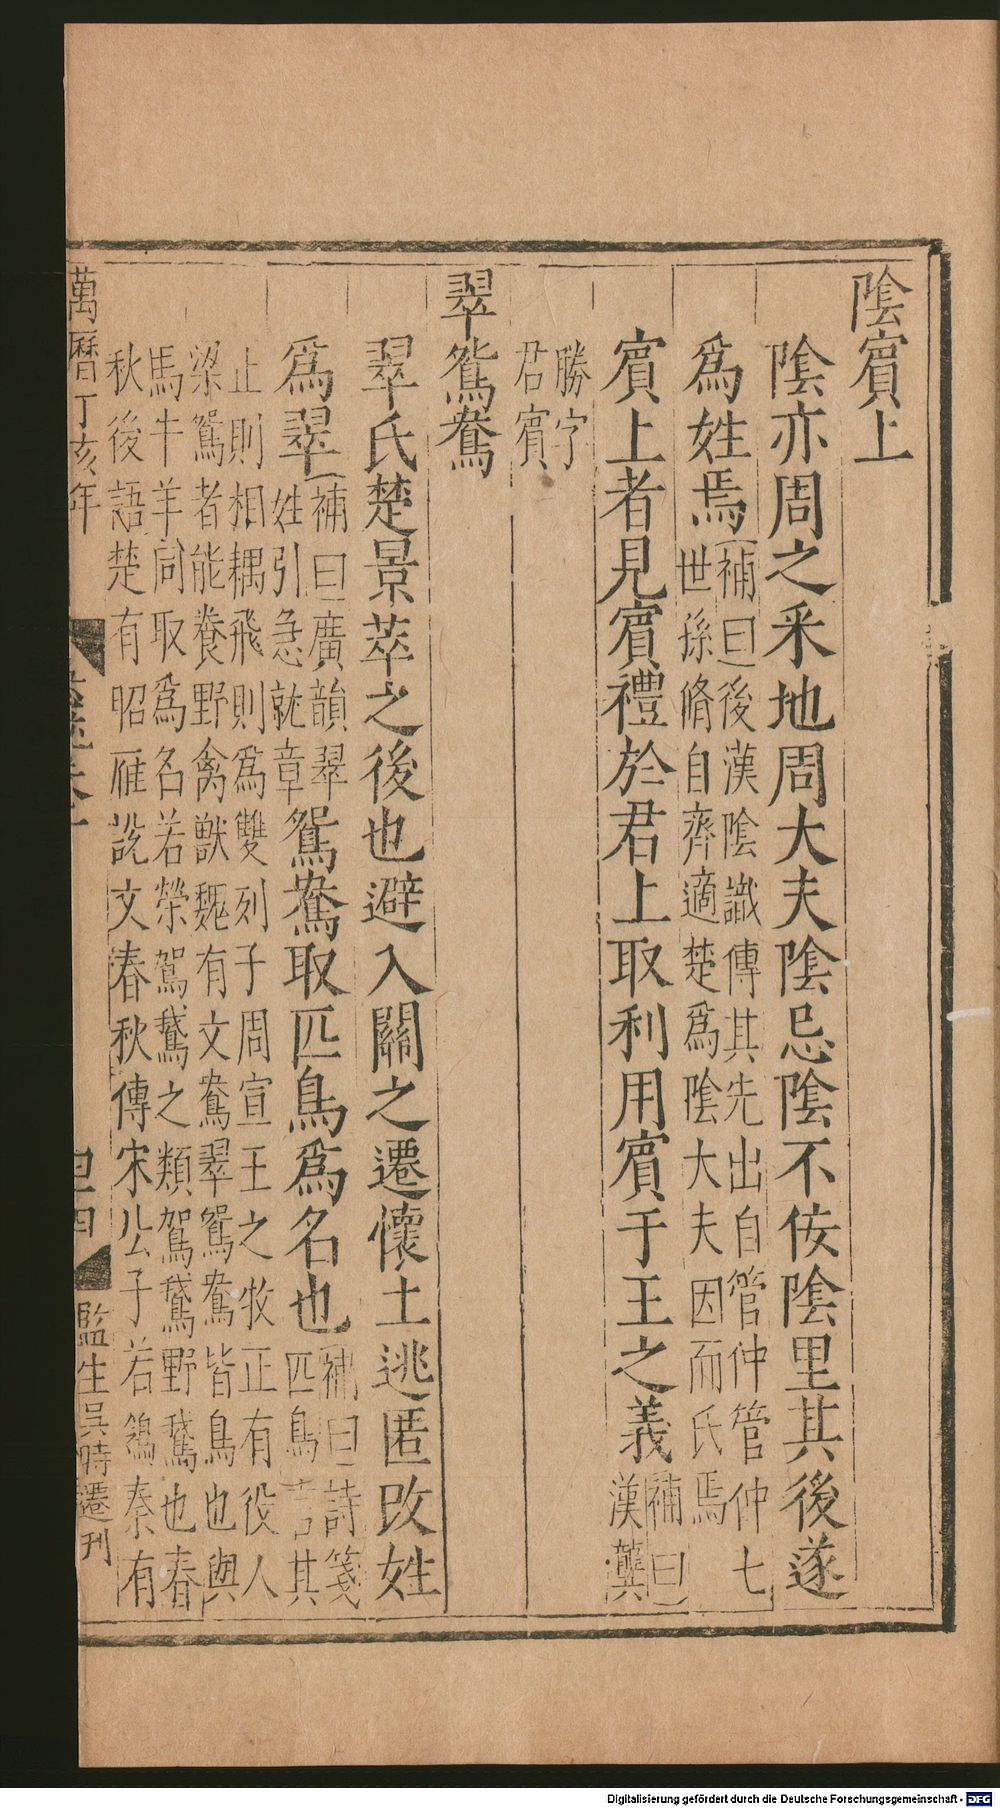 陰賓上
陰亦周之釆地周大夫陰忌陰不佞陰里其後遂
為姓焉
補曰後漢陰識傳其先出自管仲管仲七
世孫脩自齊適楚為陰大夫因而氏焉
賓上者見賓禮於君上取利用賓于王之義
補曰
漢龔
勝字
君賓
翠鴛鴦
翠氏楚景萃之後也避入關之遷懷土逃匿改姓
為翠
補曰廣韻翠
姓引急就章
鴛鴦取匹鳥為名也
補曰詩箋
匹鳥言其
止則相耦飛則為雙列子周宣王之牧正有役人
梁鴛者能養野禽獸魏有文鴦翠鴛鴦皆鳥也與
馬牛羊同取為名若榮駕鵞之類駕鵞野鵞也春
秋後語楚有昭雁說文春秋傳宋公子若鴻秦有
萬曆丁亥年
四
監生吳時遷刊
Digitalisierung gefördert durch die Deutsche Forschungsgemeinschaft - DFG